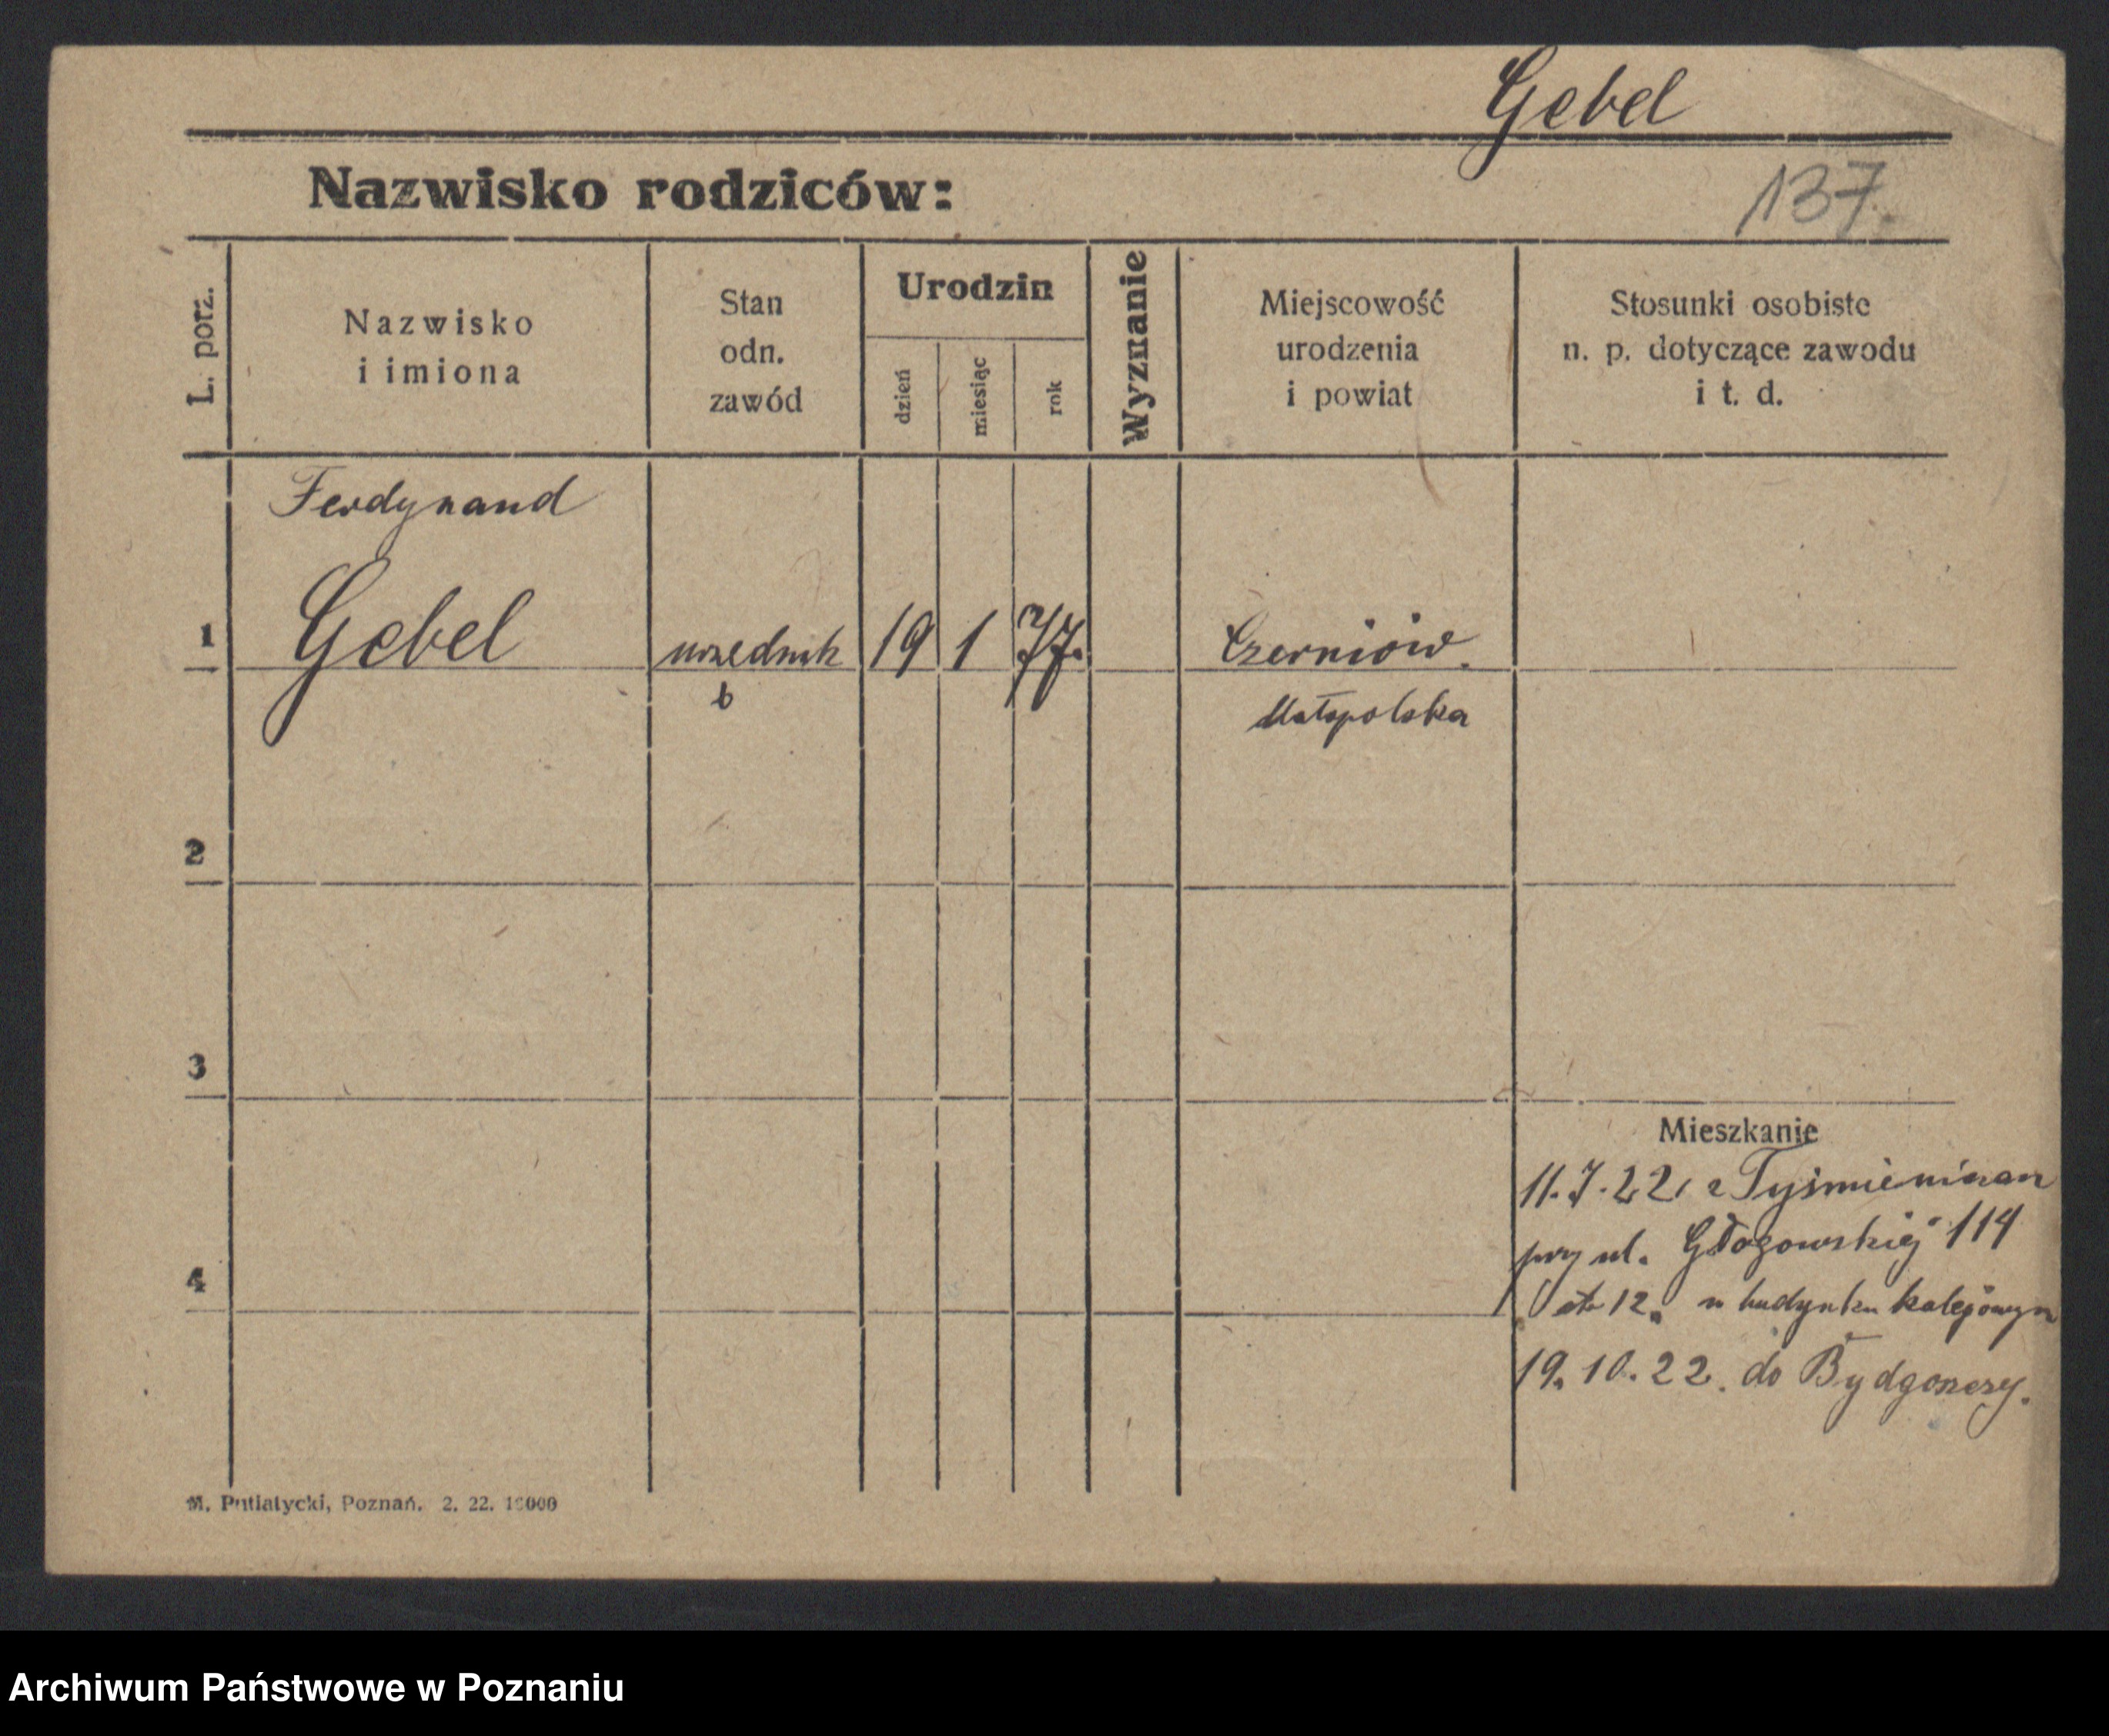 Gebel
Nazwisko rodziców:
137.
L. porz.
Nazwisko
i imiona
Stan
odn.
zawód
Urodzin
dzień
miesiąc
rok
Wyznanie
Miejscowość
urodzenia
i powiat
Stosunki osobiste
n. p. dotyczące zawodu
i t. d.
Ferdynand
1 Gebel urzednik 19 1 77. Czerniów.
b Małopolska
2
3
Mieszkanie
11.7.22 z
przy ul. Głogowskiej 114
12. w budynku kolejowym
4
19.10.22. do Bydgoszczy.
M. Putiatycki, Poznań. 2. 22. 10000
Archiwum Państwowe w Poznaniu